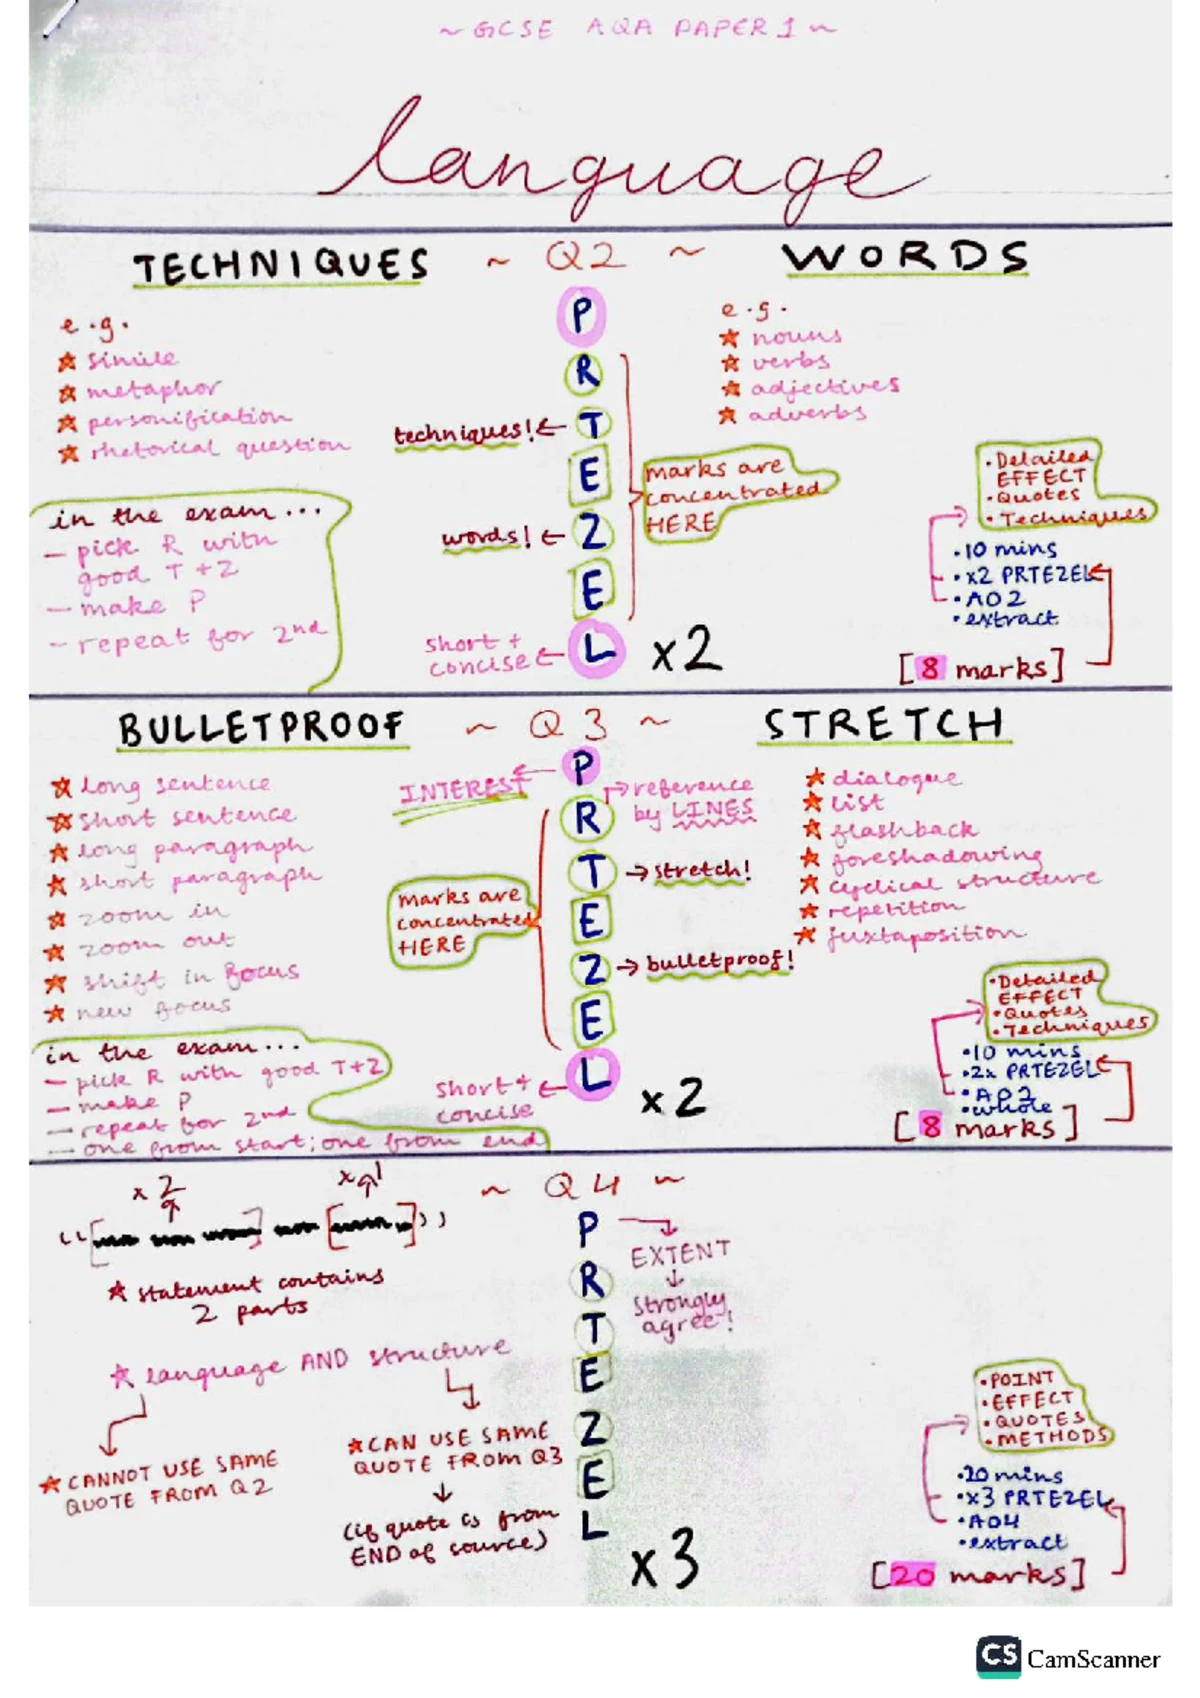 ~ GCSE AQA PAPER 1 ~
language
TECHNIQUES ~ Q2 ~ WORDS
e.g.
★ simile
★ metaphor
★ personification
★ rhetorical question
in the exam...
- pick R with
good T + Z
- make P
- repeat for 2nd
P
R
T
E
Z
E
L
techniques! ←
words! ←
short +
concise ←
x2
marks are
concentrated
HERE
e.g.
★ nouns
★ verbs
★ adjectives
★ adverbs
• Detailed
EFFECT
• Quotes
• Techniques
• 10 mins
• x2 PRTEZEL
• AO2
• extract
[8 marks]
BULLETPROOF ~ Q3 ~ STRETCH
★ long sentence
★ short sentence
★ long paragraph
★ short paragraph
★ zoom in
★ zoom out
★ shift in focus
★ new focus
in the exam...
- pick R with good T+Z
- make P
- repeat for 2nd
- one from start; one from end
INTEREST ←
P
R
T
E
Z
E
L
→ reference
by LINES
→ stretch!
→ bulletproof!
marks are
concentrated
HERE
short +
concise ←
x2
★ dialogue
★ list
★ flashback
★ foreshadowing
★ cyclical structure
★ repetition
★ juxtaposition
• Detailed
EFFECT
• Quotes
• Techniques
• 10 mins
• 2x PRTEZEL
• AO2
• whole
[8 marks]
~ Q4 ~
x2
x1
★ statement contains
2 parts
★ language AND structure
★ CANNOT USE SAME
QUOTE FROM Q2
★ CAN USE SAME
QUOTE FROM Q3
↓
(if quote is from
END of source)
P
R
T
E
Z
E
L
EXTENT
↓
strongly
agree!
x3
• POINT
• EFFECT
• QUOTES
• METHODS
• 20 mins
• x3 PRTEZEL
• AO4
• extract
[20 marks]
CS CamScanner